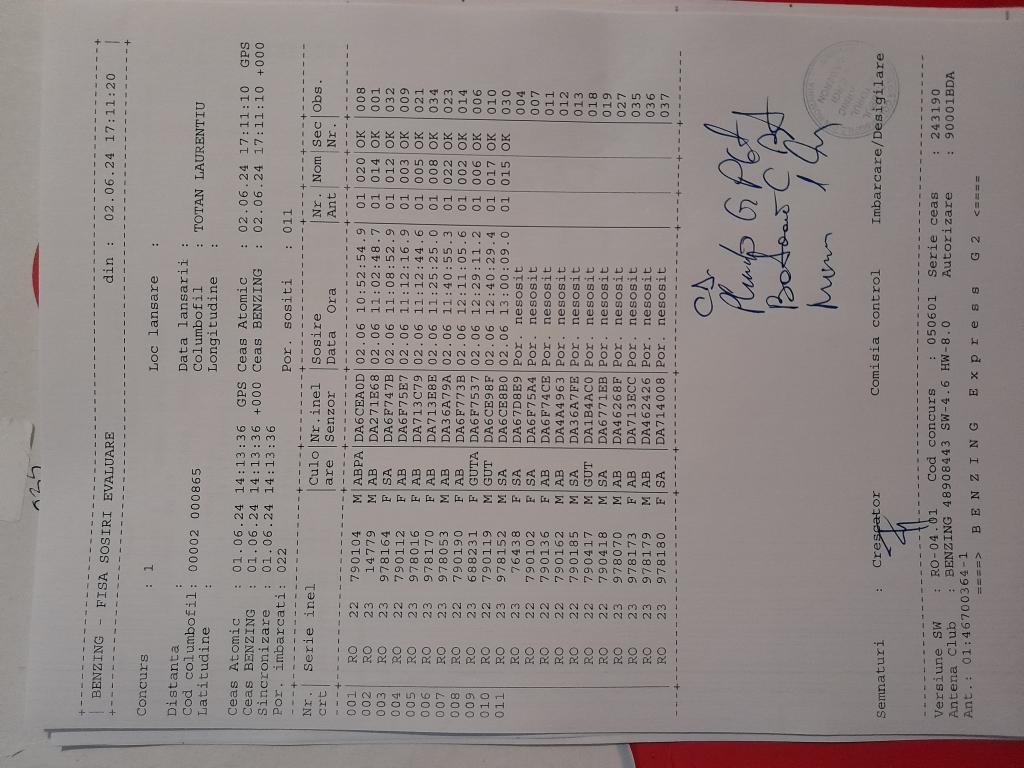 | BENZING - FISA SOSIRI EVALUARE din : 02.06.24 17:11:20 |
Concurs : 1
Loc lansare :
Distanta : Data lansarii :
Cod columbofil: 00002 000865 Columbofil : TOTAN LAURENTIU
Latitudine : Longitudine :
Ceas Atomic : 01.06.24 14:13:36 GPS Ceas Atomic : 02.06.24 17:11:10 GPS
Ceas BENZING : 01.06.24 14:13:36 +000 Ceas BENZING : 02.06.24 17:11:10 +000
Sincronizare : 01.06.24 14:13:36
Por. imbarcati: 022 Por. sositi : 011
Nr.| Serie inel |Culo|Nr.inel |Sosire |Nr |Nom|Sec|Obs.
crt| |are |Senzor |Data Ora |Ant| |Nr.|
001| RO 22 790104 M ABPA|DA6CEA0D|02.06 10:52:54.9|01|020|OK 008
002| RO 23 14779 M AB |DA271E68|02.06 11:02:48.7|01|014|OK 001
003| RO 23 978164 F SA |DA6F747B|02.06 11:08:52.9|01|012|OK 032
004| RO 22 790112 F AB |DA6F75E7|02.06 11:12:16.9|01|003|OK 009
005| RO 23 978016 F AB |DA713C79|02.06 11:12:44.6|01|005|OK 021
006| RO 23 978170 F AB |DA713EBE|02.06 11:25:25.0|01|008|OK 034
007| RO 23 978053 M AB |DA36A79A|02.06 11:40:55.3|01|022|OK 023
008| RO 22 790190 F AB |DA6F773B|02.06 12:11:05.6|01|002|OK 014
009| RO 23 688231 F GUTA|DA6F7537|02.06 12:29:11.2|01|006|OK 006
010| RO 22 790119 M GUT |DA6CE98F|02.06 12:40:29.4|01|017|OK 010
011| RO 23 978152 M SA |DA6CE8B0|02.06 13:00:09.0|01|015|OK 030
| RO 23 76438 F SA |DA67D8E9|Por. nesosit 004
| RO 22 790102 F SA |DA6F75A4|Por. nesosit 007
| RO 22 790136 F AB |DA6F74CE|Por. nesosit 011
| RO 22 790162 M AB |DA4A4963|Por. nesosit 012
| RO 22 790185 M SA |DA36A7FE|Por. nesosit 013
| RO 22 790417 M GUT |DA1B4AC0|Por. nesosit 018
| RO 22 790418 M SA |DA6771EB|Por. nesosit 019
| RO 23 978070 M AB |DA46268F|Por. nesosit 027
| RO 23 978173 F AB |DA713ECC|Por. nesosit 035
| RO 23 978179 M AB |DA462426|Por. nesosit 036
| RO 23 978180 F SA |DA714008|Por. nesosit 037
Semnaturi : Crescator Comisia control Imbarcare/Desigilare
Versiune SW : RO-04.01 Cod concurs : 050601 Serie ceas : 243190
Antena Club : BENZING 48908443 SW-4.6 HW-8.0 Autorizare : 90001BDA
Ant.: 01:46700364-1
====> B E N Z I N G E x p r e s s G 2 <====